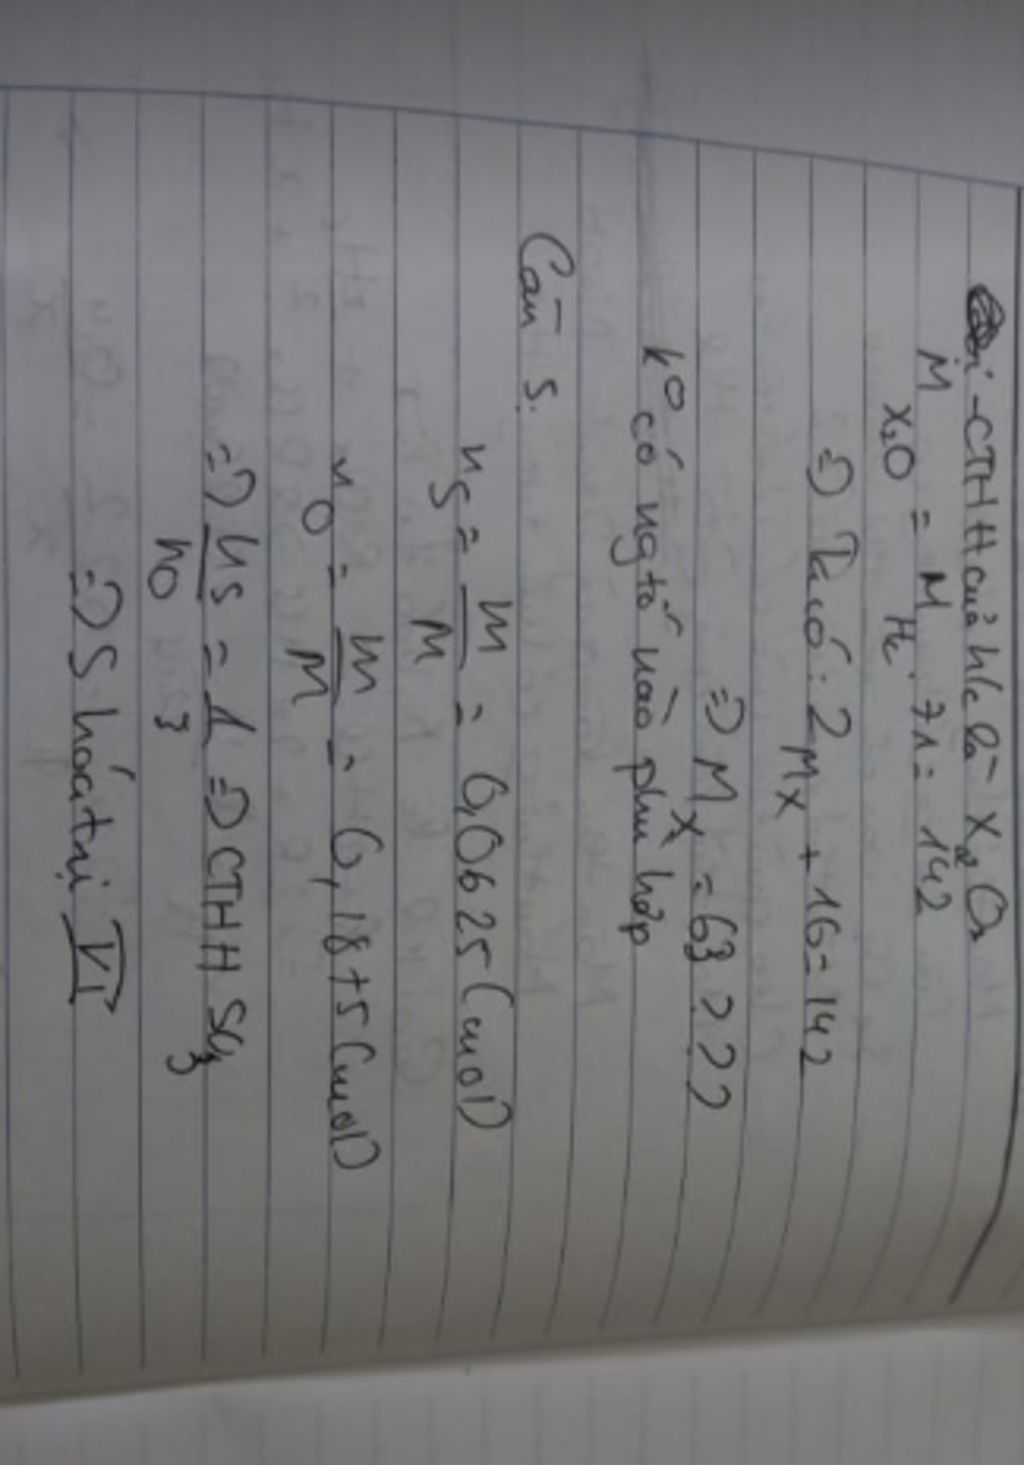 -CTHH của h/c là X2O
M X2O = M H2 . 71 = 142
=> Ta có: 2 MX + 16 = 142
=> MX = 63 ? ? ?
ko có ngtố nào phù hợp
Câu 5.
nS = m/M = 0,0625 (mol)
nO = m/M = 0,1875 (mol)
=> nS/nO = 1/3 => CTHH SO3
=> S hóa trị VI